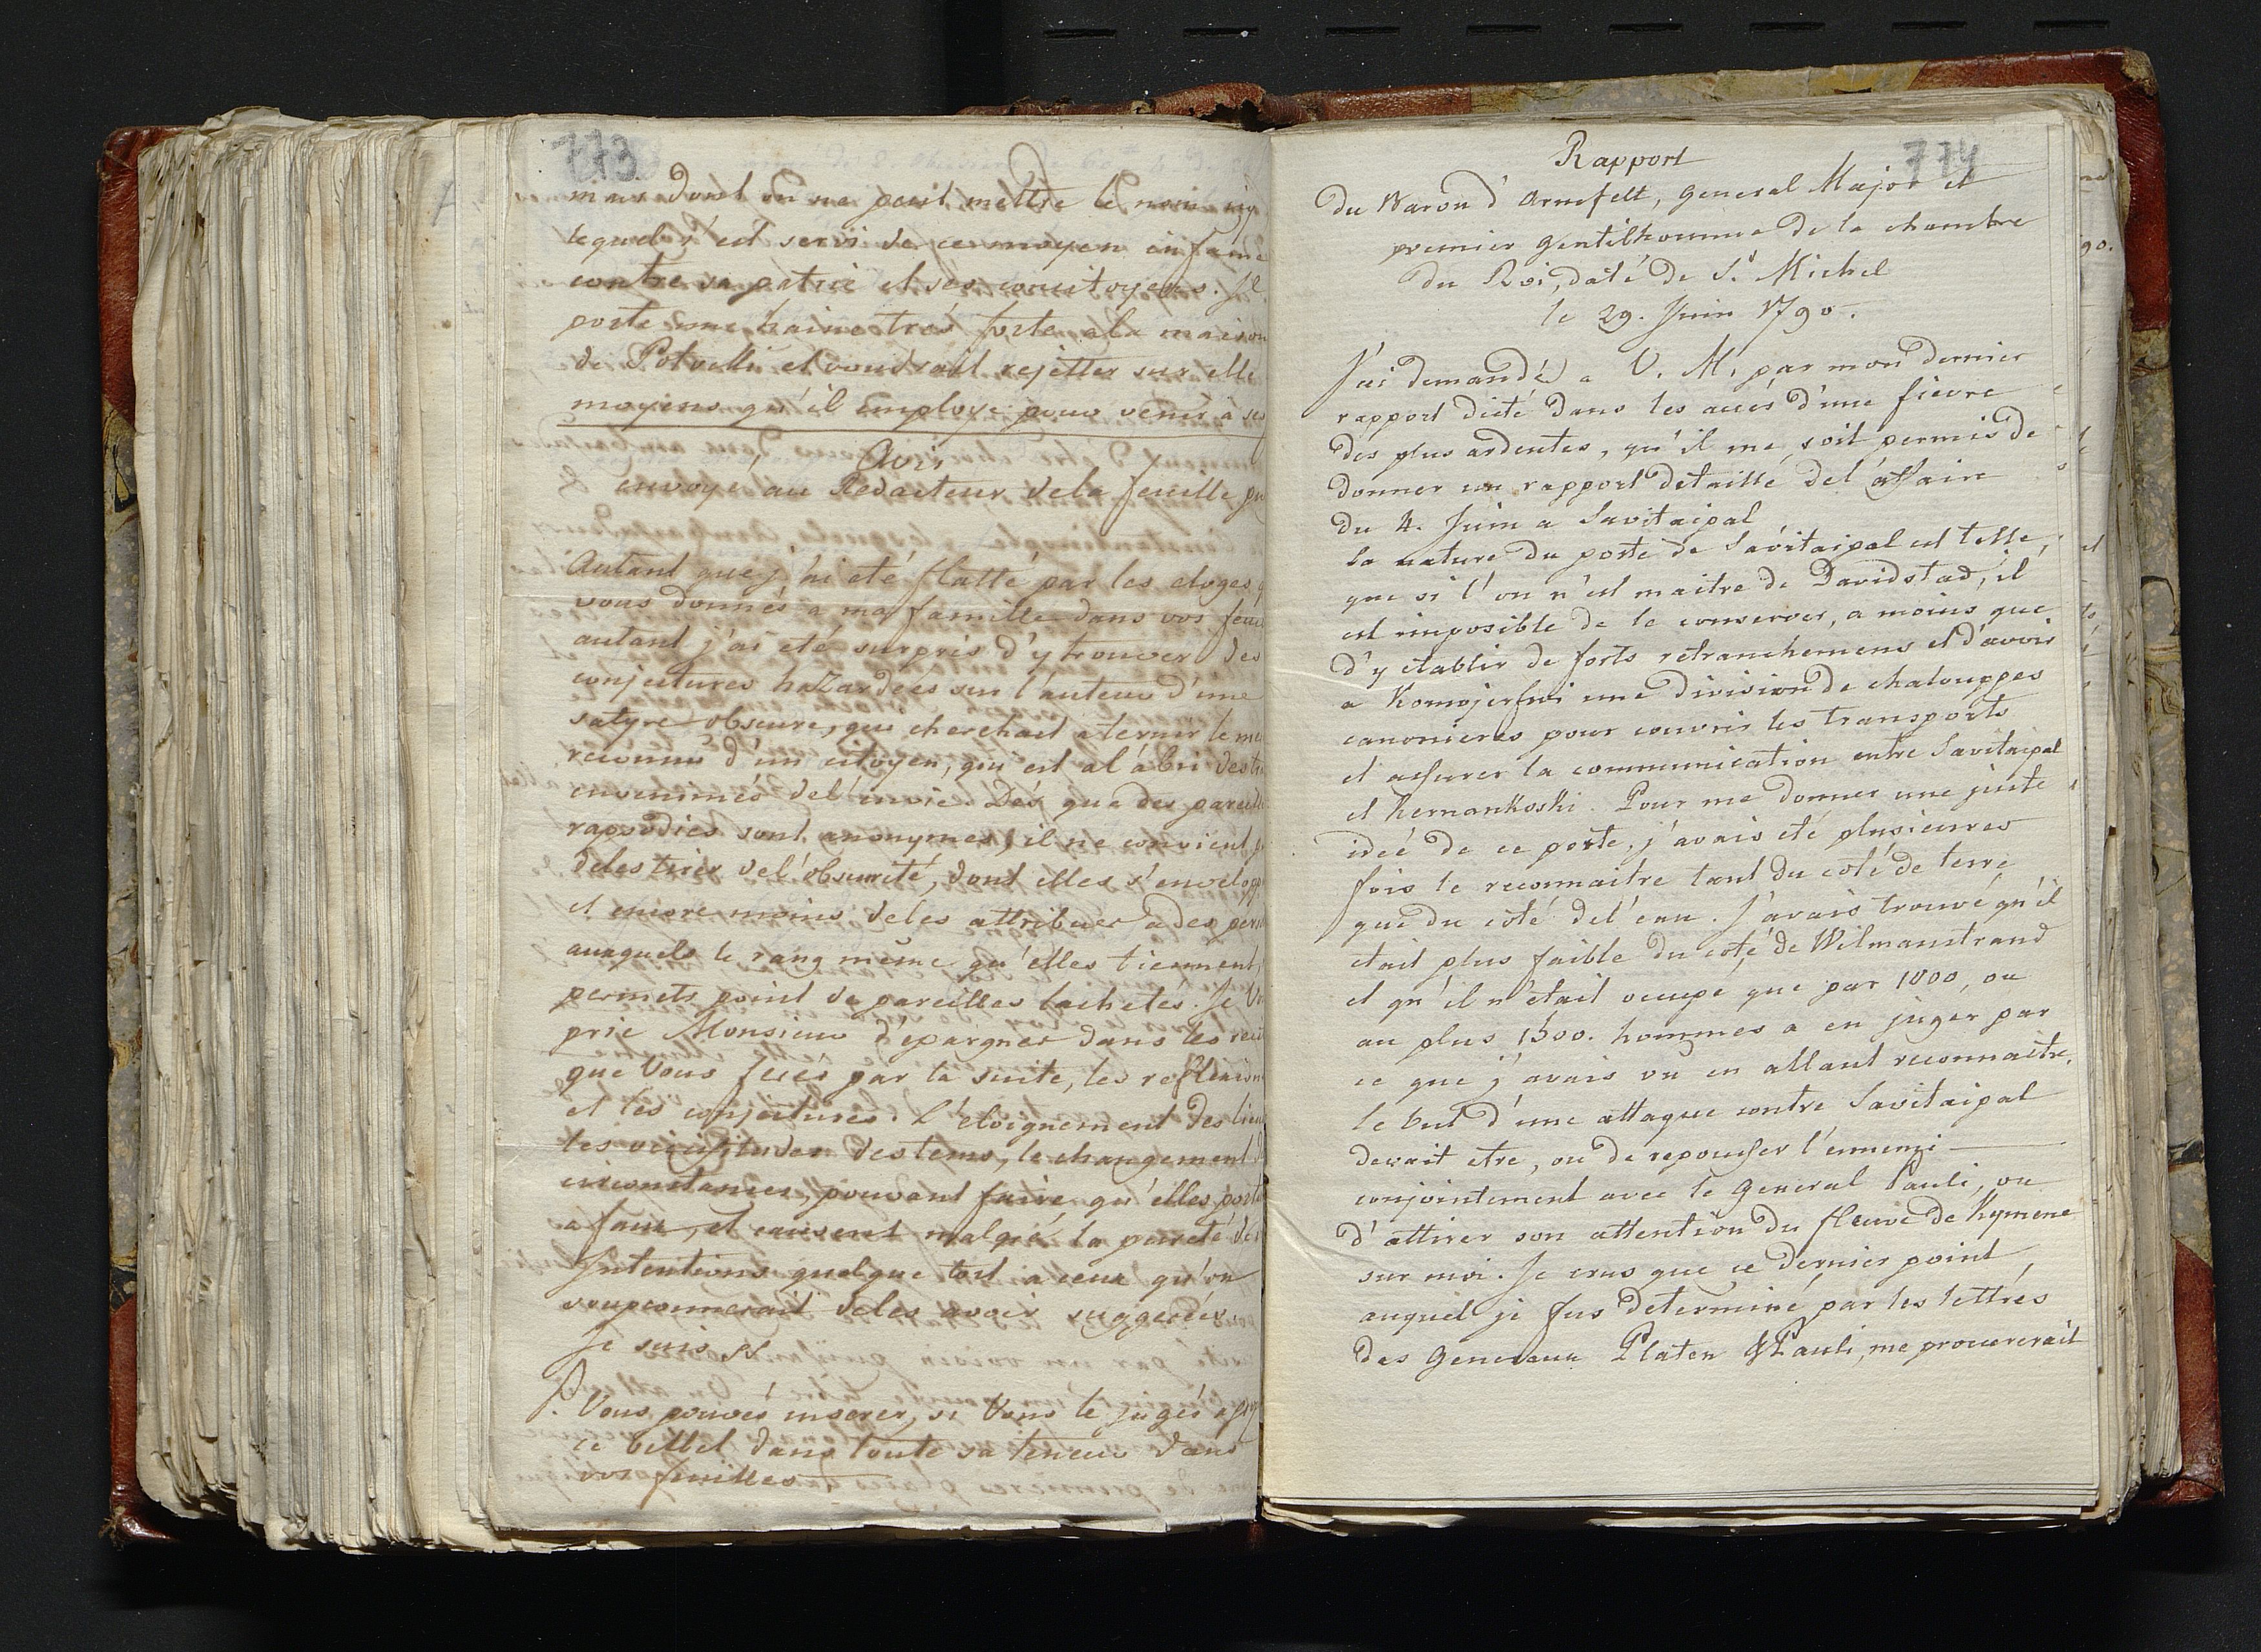 773
mi au dont on ne peut mettre le nom
lequel s'est servi de ce moyen infame
contre sa patrie et ses concitoyens. Jl
porte une haine trés forte a la maison
de Potvelli et voudrait rejetter sur elle
moyens qu'il employe pour venir à ses
Avis
envoyé au Redacteur dela feuille
Autant que j'ai eté flatté par les eloges
vous donnés a ma famille dans vos
autant j'ai eté surpris d'y trouver des
conjectures hazardeés sur l'auteur d'une
satyre obscure, qui cherchait a ternir le
reconnu d'un citoyen, qui est al'abri des
envenimés del'envie. Dés que des
rapsodies sont anonymes, il ne convient
deles tirer del'obscurité, dont elles
et encore moins deles attribuer a des
auxquels le rang même qu'elles tiennent
permets point de pareilles lachetes. Je
prie Monsieur d'épargner dans les
que Vous ferés par la suite, les reflexions
et les conjectures. L'éloignement des
les vicissitudes des tems, le changement
circonstances, pouvant faire qu'elles
a faux, et causent malgré la pureté
Intentions quelque tort a ceux qu'on
soupconnerait deles avoir suggereés
Je suis
P. Vous pouvés inserer, si Vous le jugés
ce billet dans toute sa teneur dans
vos feuilles
774
Rapport
du Baron d'Armfelt, General Major et
premier Gentilhomme de la chambre
du Roi, daté de St Michel
le 29. Juin 1790.
J'ai demandé a V. M. par mon dernier
rapport dicté dans les accés d'une fievre
des plus ardentes, qu'il me soit permis de
donner un rapport detaillé del'affaire
du 4. Juin a Savitaipal
La nature du poste de Savitaipal est telle,
que si l'on n'est maitre de Davidstad, il
est imposible de le conserver, a moins que
d'y etablir de forts retranchemens et d'avoir
a Komojerfwi une division de chalouppes
canonieres pour couvrir les transports
et assurer la communication entre Savitaipal
et Kernankoski. Pour me donner une juste
ideé de ce poste, j'avais eté plusieures
fois le reconnaitre tant du coté de terre
que du coté del'eau. J'avais trouvé qu'il
etait plus faible du coté de Wilmanstrand
et qu'il n'était occupé que par 1000, ou
au plus 1500. hommes a en juger par
ce que j'avais vu en allant reconnaitre.
le but d'une attaque contre Savitaipal
devait etre, ou de repousser l'ennemi
conjointement avec le General Pauli, ou
d'attirer son attention du fleuve de Kymene
sur moi. Je crus que ce dernier point
auquel je fus determiné par les lettrés
des Generaux Platen & Pauli, me procurerait